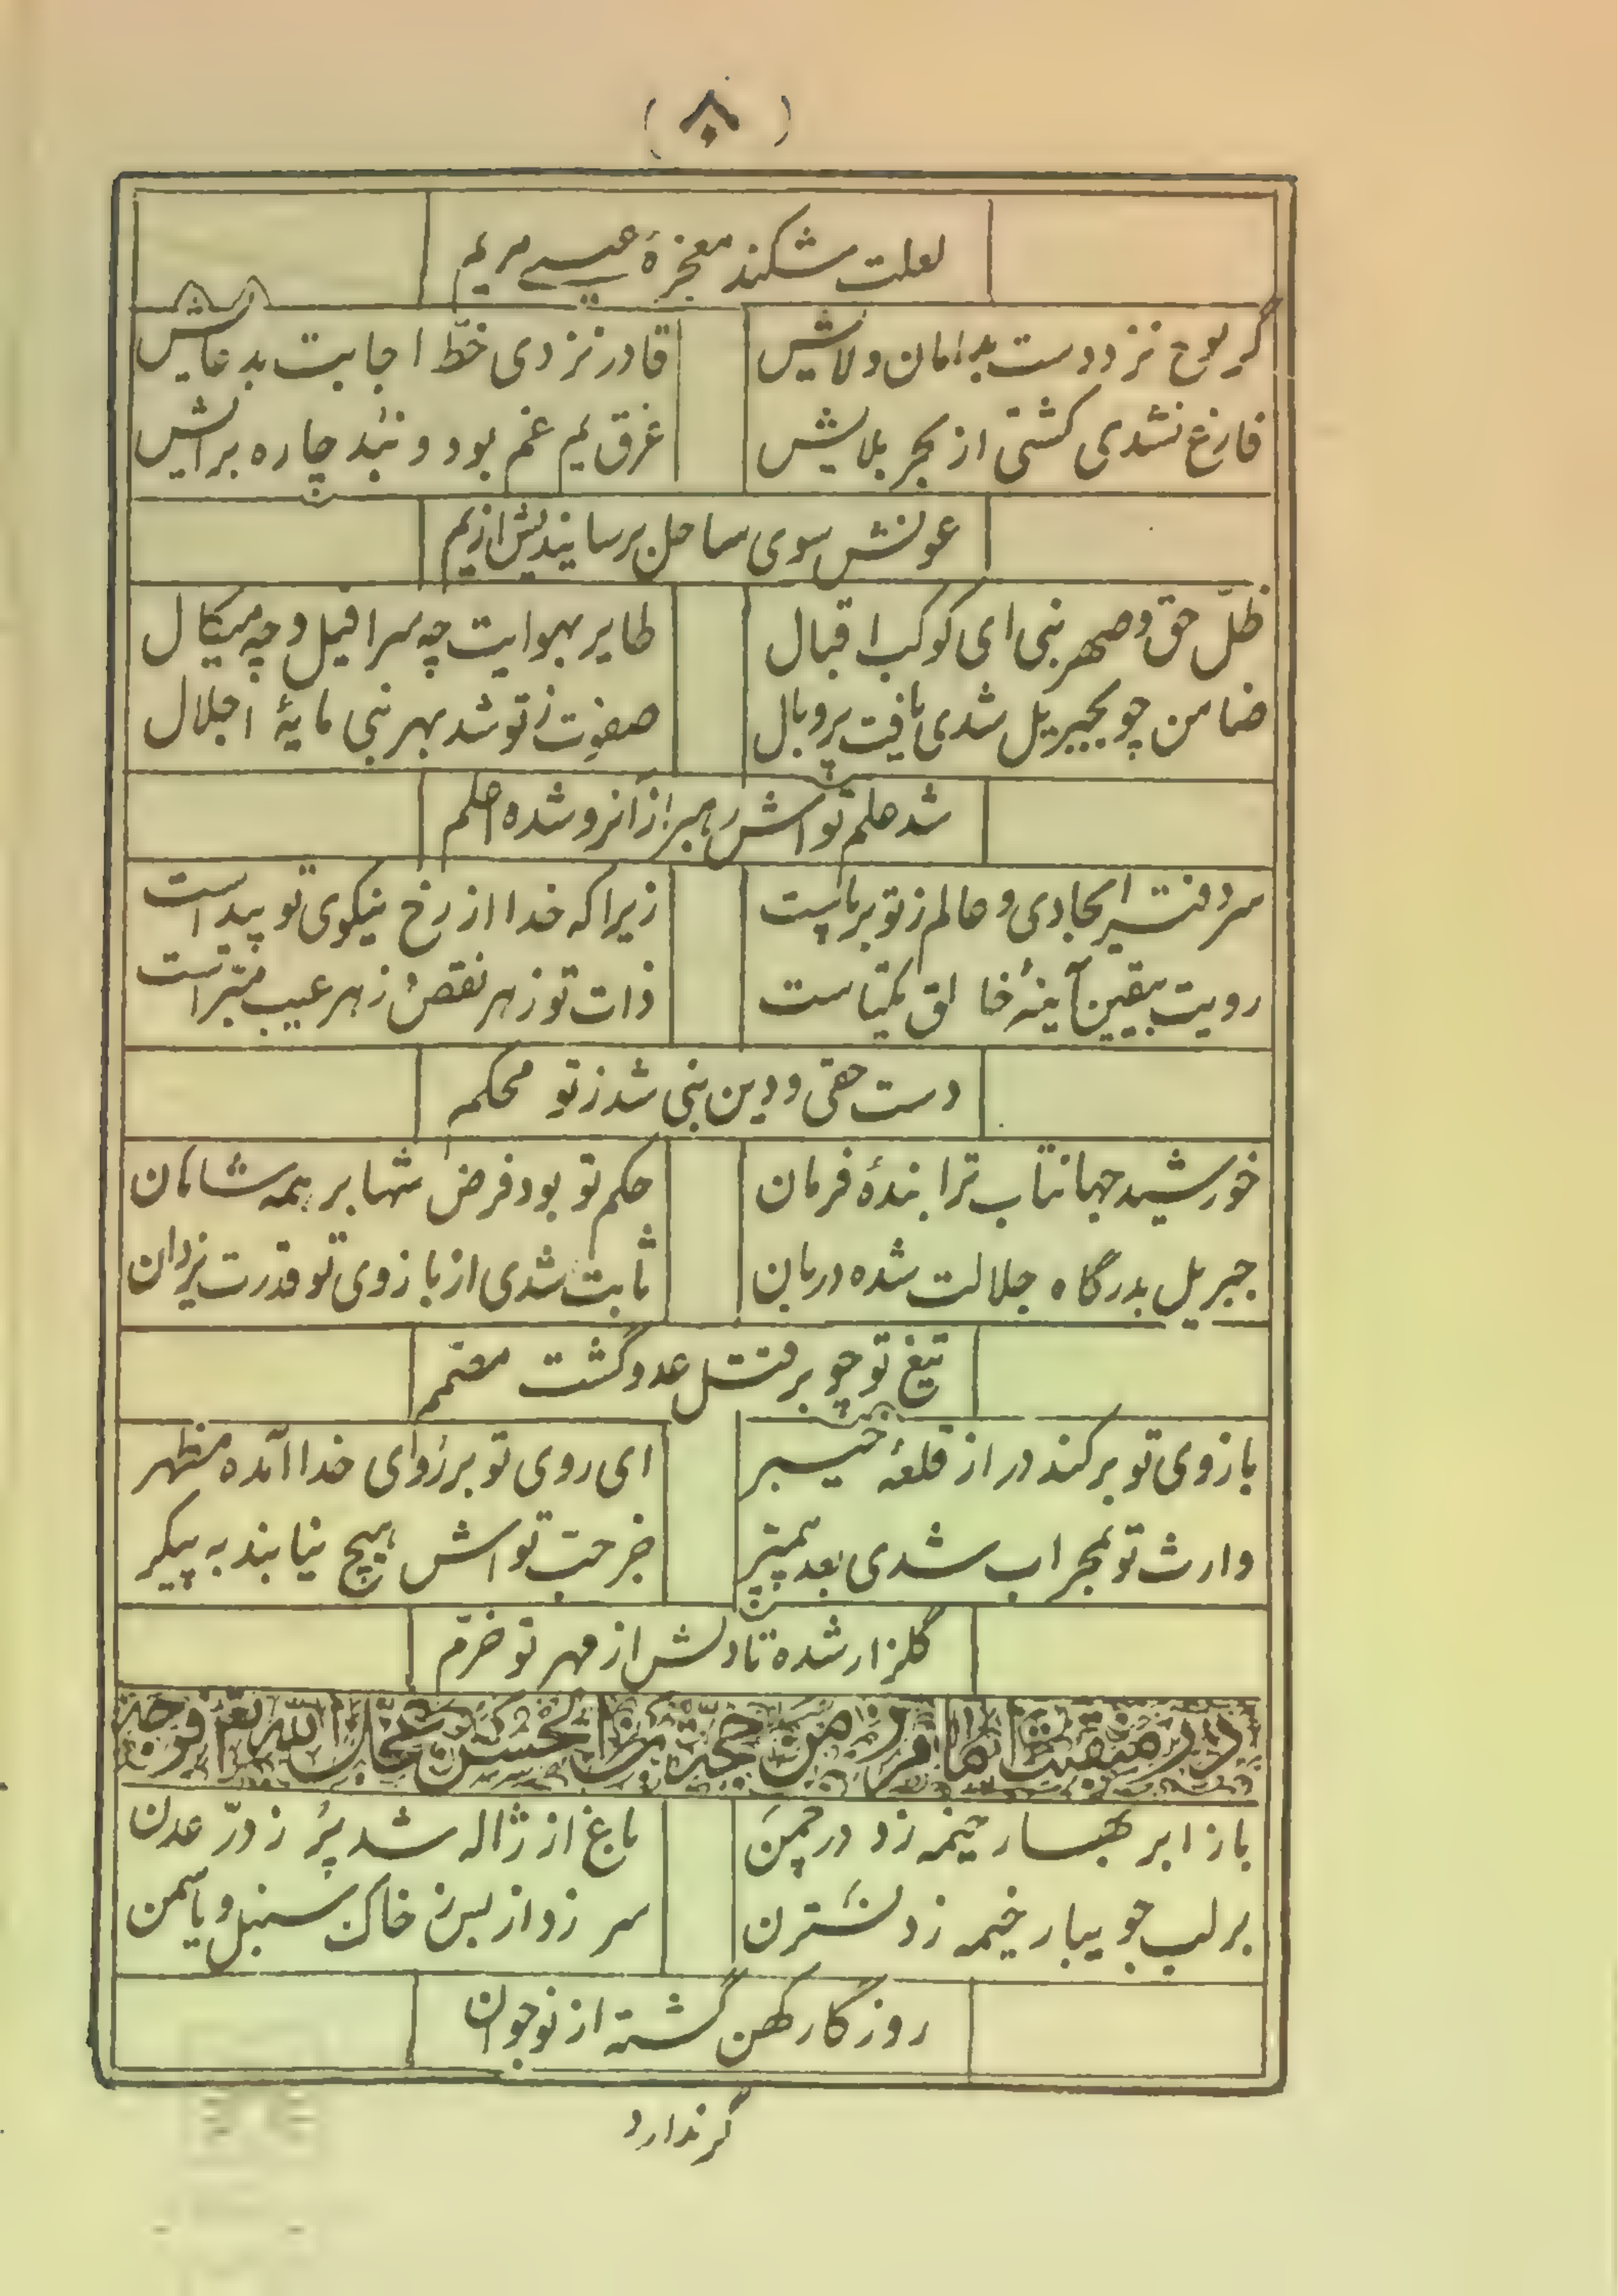 ( ۸۰ )
لعلت شکند معجزهٔ عیسے مریم
گر نوح نزد دست بدامان ولایش قادر نزدی خطّ اجابت بدعایش
فارغ نشدی کشتی از بحر بلایش غرق یم غم بود و نبد چاره برایش
عونش سوی ساحل برسانیدش ازیم
ظلّ حق و صهر نبی ای کوکب اقبال طایر بهوایت چه سرافیل و چه میکال
ضامن چو بجبریل شدی یافت پر و بال صفوت ز تو شد بهر نبی مایهٔ اجلال
شد حلم تواش رهبر از آنرو شده احلم
سر دفتر ایجادی و عالم ز تو برپاست زیرا که خدا از رخ نیکوی تو پیداست
رویت بیقین آینهٔ خالق یکتاست ذات تو ز هر نقص و ز هر عیب مبرّاست
دست حقی و دین نبی شد ز تو محکم
خورشید جهانتاب ترا بندهٔ فرمان حکم تو بود فرض شها بر همه شاهان
جبریل بدرگاه جلالت شده دربان ثابت شدی از بازوی تو قدرت یزدان
تیغ تو چو بر قتل عدو گشت مصمم
بازوی تو بر کند در از قلعهٔ خیبر ای روی تو بر رُوای خدا آمده مظهر
وارث تو بمحراب شدی بعد پیمبر جز حبّ تواش هیچ نیابند به پیکر
گلزار شده تا دلش از مهر تو خرّم
در منقبت امام زمن حجة بن الحسن عجّل اللّه تع فرجه
باز ابر بهار خیمه زد در چمن باغ از ژاله شد پُر ز درّ عدن
بر لب جویبار خیمه زد نسترن سر زد از بس ز خاک سنبل و یاسمن
روزگار کهن گشته از نو جوان
گر ندارد